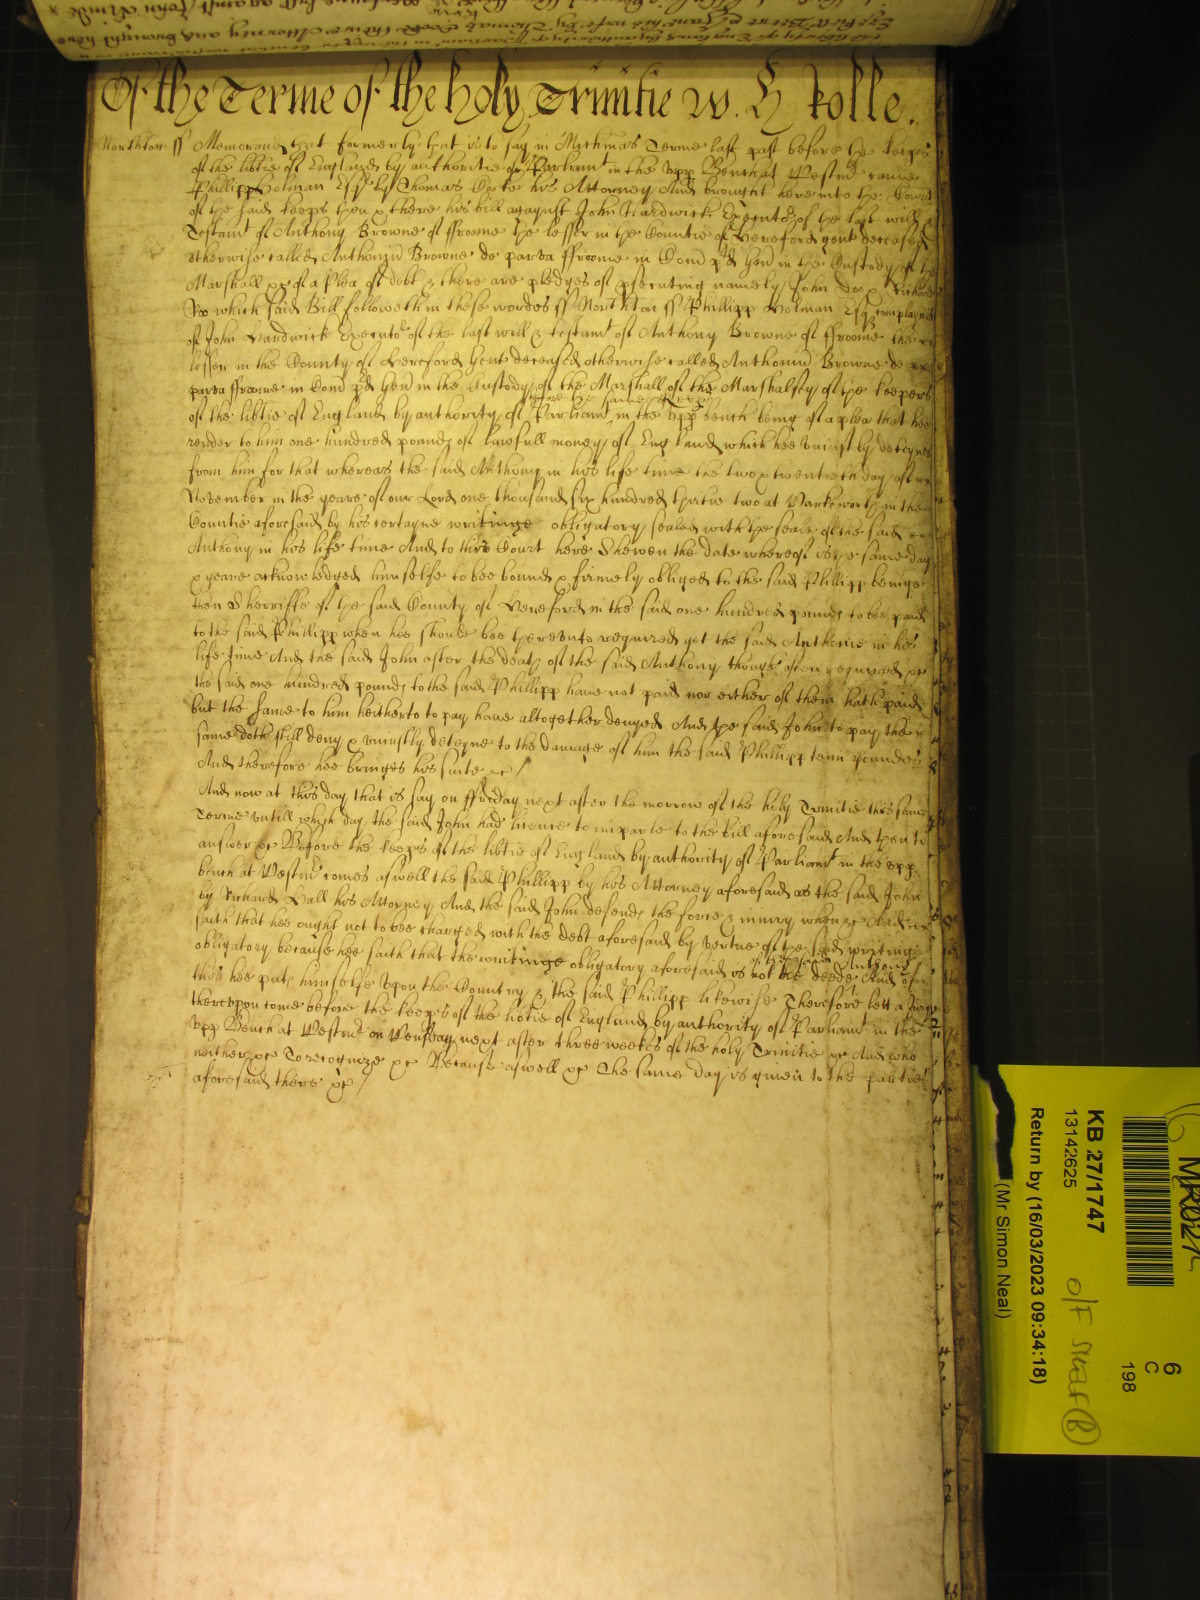 Of the Terme of the holy Trinitie w. H Rolle.
Northton ss Memorand that formerly that is to say in Michmas Terme last past before the keeps
of the libtie of England by authoritie of Parliamt in the vpp Bench at Westmr came
Phillipp Holman Esqr by Thomas Coote his Attorney And brought here into the Court
of the said keeps then x there his bill against John Hardwicke Executor of the last will x
Testamt of Anthony Browne of ffroome the lesser in the Countie of Hereford gent deceased
otherwise called Anthoniu Browne de parva ffroome in Com pd Gen in the Custody of the
Marshall xc of a Plea of debt x there are pledges of psecuting namely John Doo x Richard
Roo which said Bill followeth in these wordes ss Northton ss Phillipp Holman Esqr complaynes
of John Hardwick Executor of the last will x testamt of Anthony Browne of ffroome the
lesser in the County of Hereford Gent deceased otherwise called Anthoniu Browne de
parva ffroome in Com pd Gen in the Custody of the Marshall of the Marshalsey of the keepers
of the libtie of England by authority of Parliamt in the vpp bench being of a plea that hee
before the same keepers
render to him one hundred pounds of lawfull money of England which hee vniustly deteynes
from him for that whereas the said Anthony in his life time the two x twentieth day of
November in the yeare of our Lord one thousand six hundred thirtie two at Warkworth in the
Countie aforesaid by his certayne writinge obligatory sealed with the seale of the said
Anthony in his life time And to this Court here shewen the date whereof is the same day
x yeare acknowledged himselfe to bee bound x firmely obliged to the said Phillipp beinge
then Sherriffe of the said County of Hereford in the said one hundred pounds to bee paid
to the said Phillipp when hee should bee therevnto required yet the said Anthonie in his
life time And the said John after the death of the said Anthony though often required xc
the said one hundred pounds to the said Phillipp haue not paid nor either of them hath paid
but the same to him hitherto to pay haue altogether denyed And the said John to pay the
same doth still deny x vniustly deteyne to the damage of him the said Phillipp tenn pounds
And therefore hee bringes his suite xc /
And now at this day that is say on ffriday next after the morrow of the holy Trinitie this same
Terme vntill which day the said John had licence to imparle to the bill aforesaid And then to
answer xc Before the keeps of the libtie of England by authority of Parliamt in the vpp
bench at Westmr comes aswell the said Phillipp by his Attorney aforesaid as the said John
by Richard Hall his Attorney And the said John defends the force x iniury when xc And
saith that hee ought not to bee charged with the debt aforesaid by vertue of the said writing
obligatory because hee saith that the writinge obligatory aforesaid is not the deede And of
of the said Anthony
this hee puts himselfe vpon the Country x the said Phillipp likewise Therefore lett a Jury
therevpon come before the keeps of the libtie of England by authority of Parliamt in the
vpp Bench at Westmr on Wensday next after three weekes of the holy Trinitie xc And who
neither xc To recognize xc Because aswell xc The same day is given to the parties
aforesaid there xc /
KB 27/1747
13142625
Return by (16/03/2023 09:34:18)
(Mr Simon Neal)
6
C
198